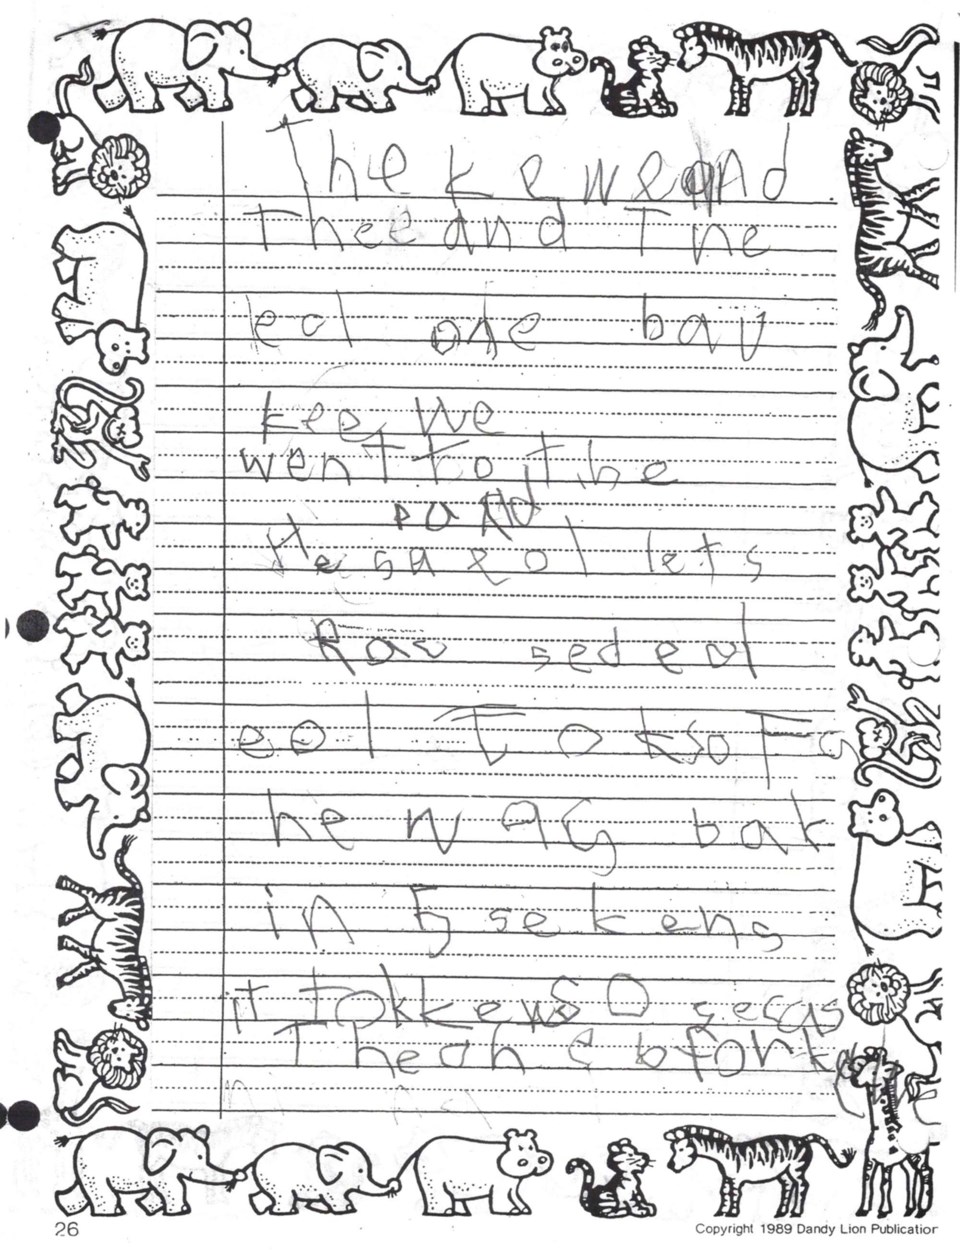 The kewe and
Thee and The
eol one bav
kee, We
went to the
He sa eol lets
Rav sed eol
eol Tok so Fa
he was bak
in 5 sekens
it tok kews 0 secas
26
Copyright 1989 Dandy Lion Publication